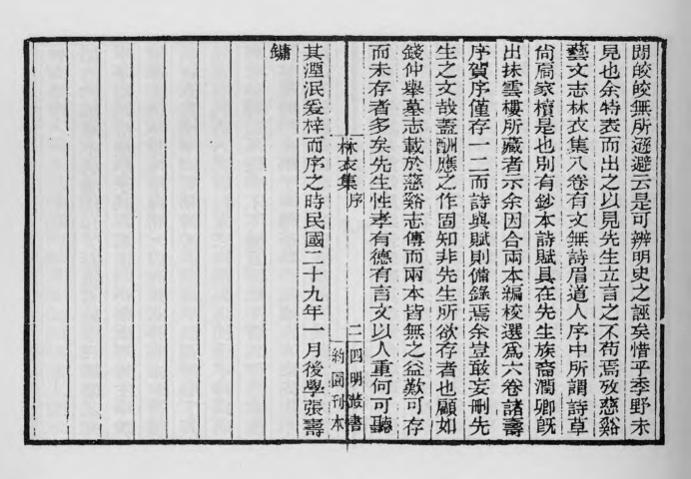 閒皎皎無所遜避云是可辨明史之誣矣惜乎季野未
見也余特表而出之以見先生立言之不苟焉攷慈谿
藝文志林衣集八卷有文無詩眉道人序中所謂詩草
尙扃家櫝是也別有鈔本詩賦具在先生族裔潤卿旣
出抹雲樓所藏者示余因合兩本編校選爲六卷諸壽
序賀序僅存一二而詩與賦則備錄焉余豈敢妄刪先
生之文哉蓋酬應之作固知非先生所欲存者也顧如
錢仲舉墓志載於慈谿志傳而兩本皆無之益歎可存
而未存者多矣先生性孝有德有言文以人重何可聽
林衣集 序
二 四明叢書
約園刊本
其湮泯爰梓而序之時民國二十九年一月後學張壽
鏞